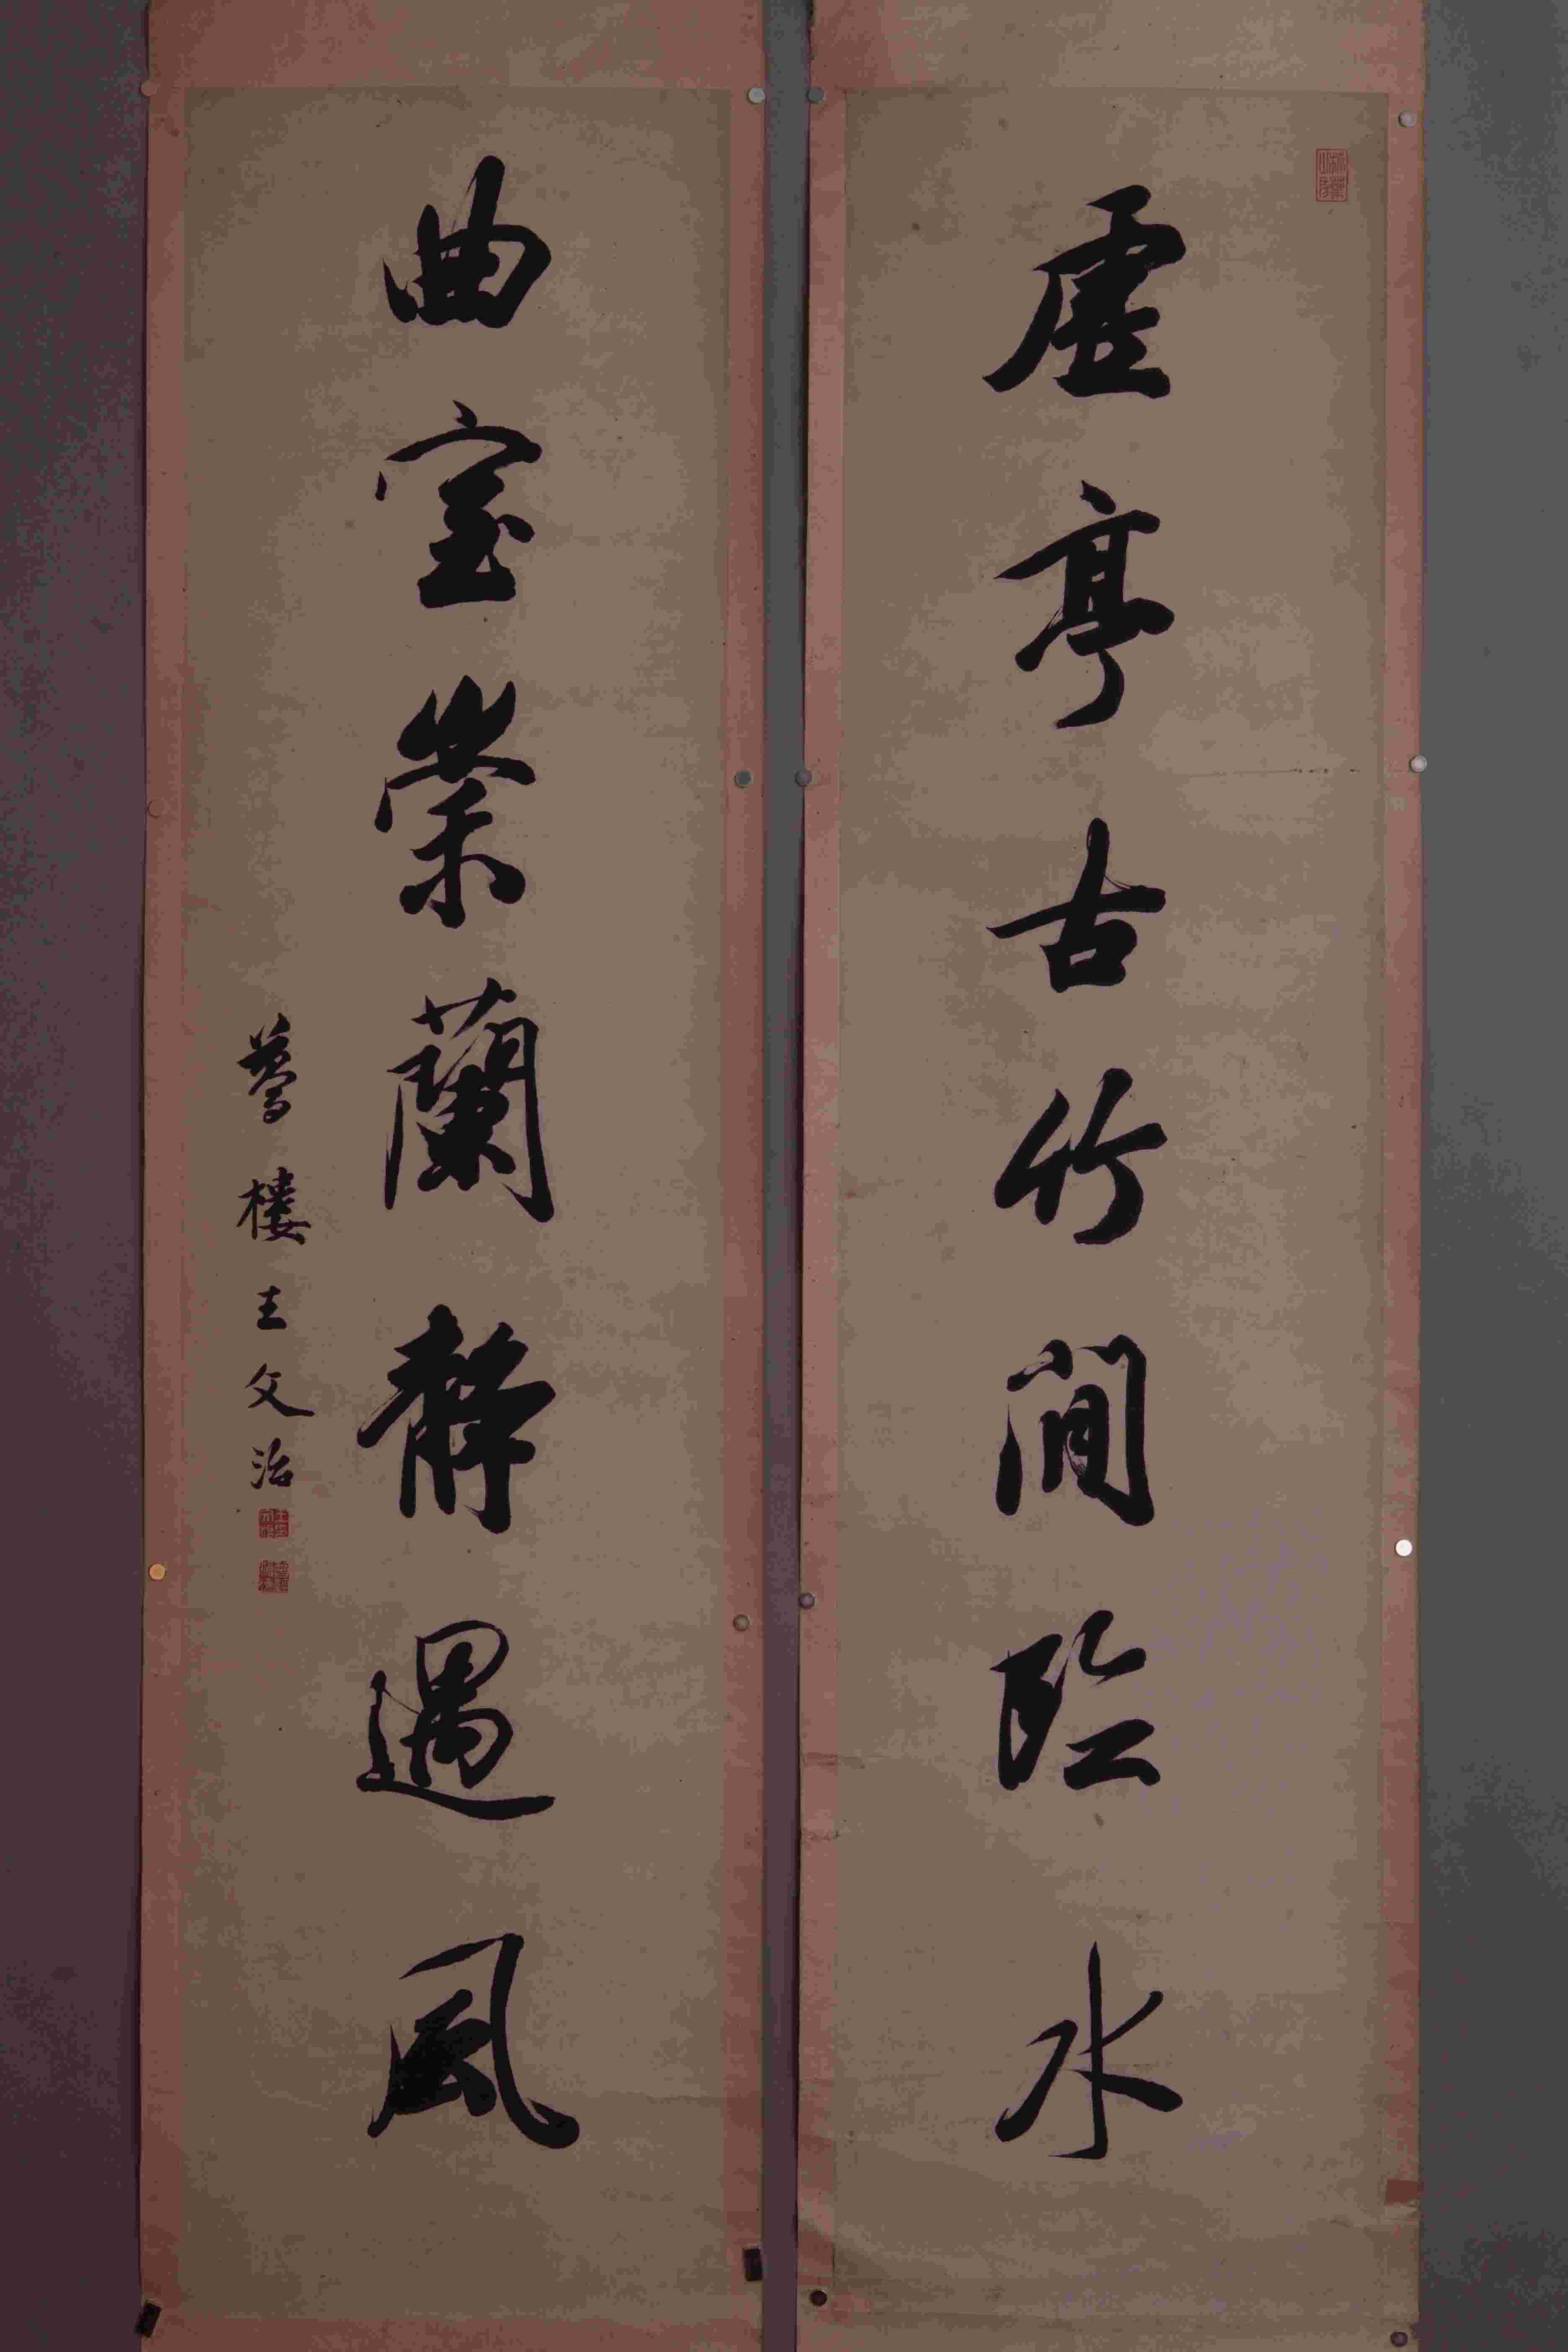 虛亭古竹閒臨水
曲室崇蘭靜遇風
夢樓王文治